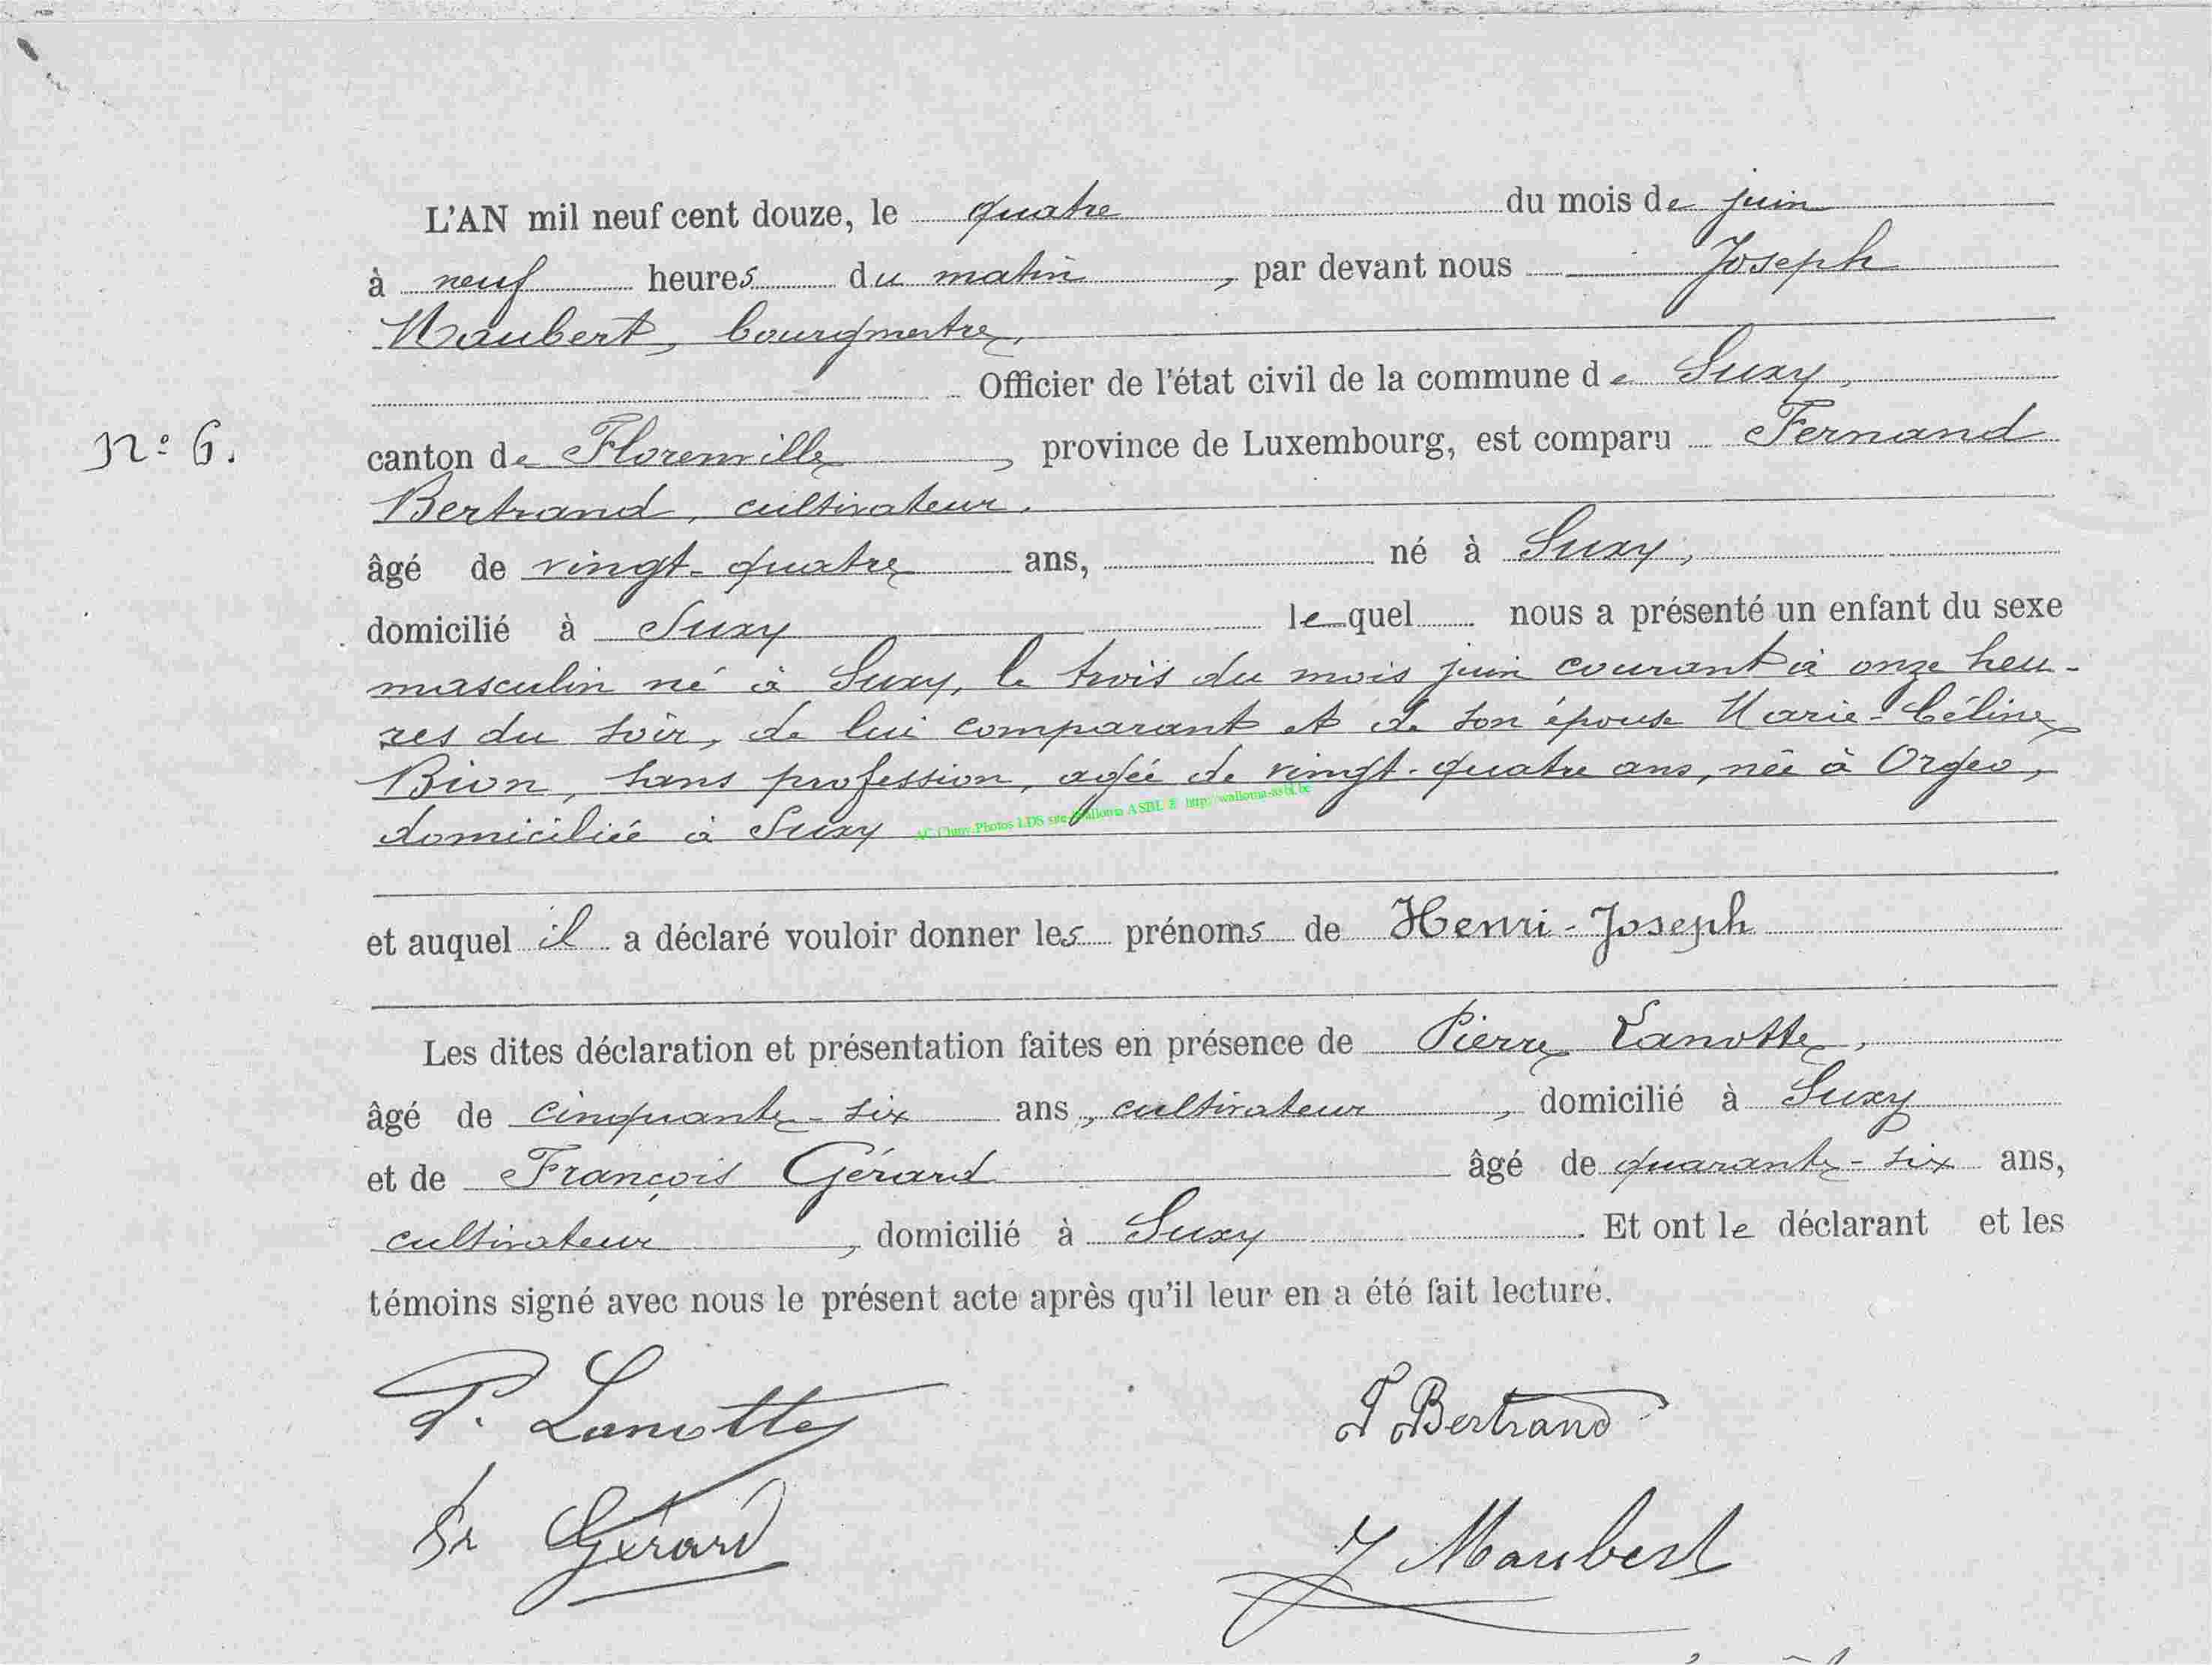 L'AN mil neuf cent douze, le quatre du mois de juin
à neuf heures du matin, par devant nous Joseph
Maubert, bourgmestre,
Officier de l'état civil de la commune de Suxy,
N° 6.
canton de Florenville, province de Luxembourg, est comparu Fernand
Bertrand, cultivateur,
âgé de vingt-quatre ans, né à Suxy,
domicilié à Suxy lequel nous a présenté un enfant du sexe
masculin né à Suxy, le trois du mois juin courant à onze heu-
res du soir, de lui comparant et de son épouse Marie-Céline
Bion, sans profession, agée de vingt-quatre ans, née à Orgeo,
domiciliée à Suxy
et auquel il a déclaré vouloir donner les prénoms de Henri-Joseph
Les dites déclaration et présentation faites en présence de Pierre Lanotte,
âgé de cinquante-six ans, cultivateur, domicilié à Suxy
et de François Gérard âgé de quarante-six ans,
cultivateur, domicilié à Suxy. Et ont le déclarant et les
témoins signé avec nous le présent acte après qu'il leur en a été fait lecture.
P. Lanotte F Bertrand
Fr Gérard J Maubert